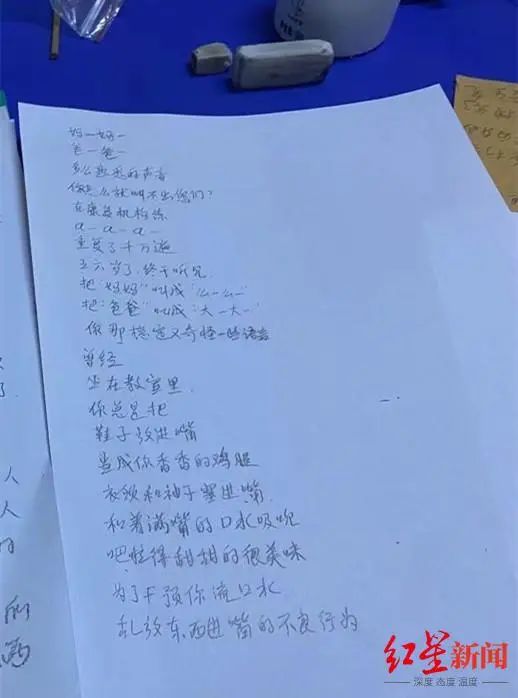 妈一妈一
爸一爸一
多么熟悉的声音
你怎么就叫不出您们?
在康复机构练
a- a- a-
重复了千万遍
五六岁了,终于听见
把"妈妈"叫成"么一么一"
把"爸爸"叫成"大一大一"
你那稳定又奇怪一些语言
曾经
坐在教室里,
你总是把
鞋子放进嘴
当成你香香的鸡腿
衣领和袖子塞进嘴,
和着满嘴的口水吸吮
吧唧得甜甜的很美味
为了干预你流口水
乱放东西进嘴的不良行为
人
人
红星新闻
深度 态度 温度